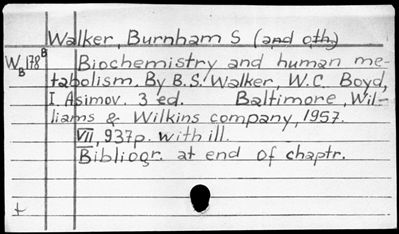 Walker, Burnham S (and oth)
W 178 B
B
Biochemistry and human me-
tabolism. By B.S. Walker, W.C. Boyd,
I. Asimov. 3 ed. Baltimore, Wil-
liams & Wilkins company, 1957.
VII, 937p. with ill.
Bibliogr. at end of chaptr.
t